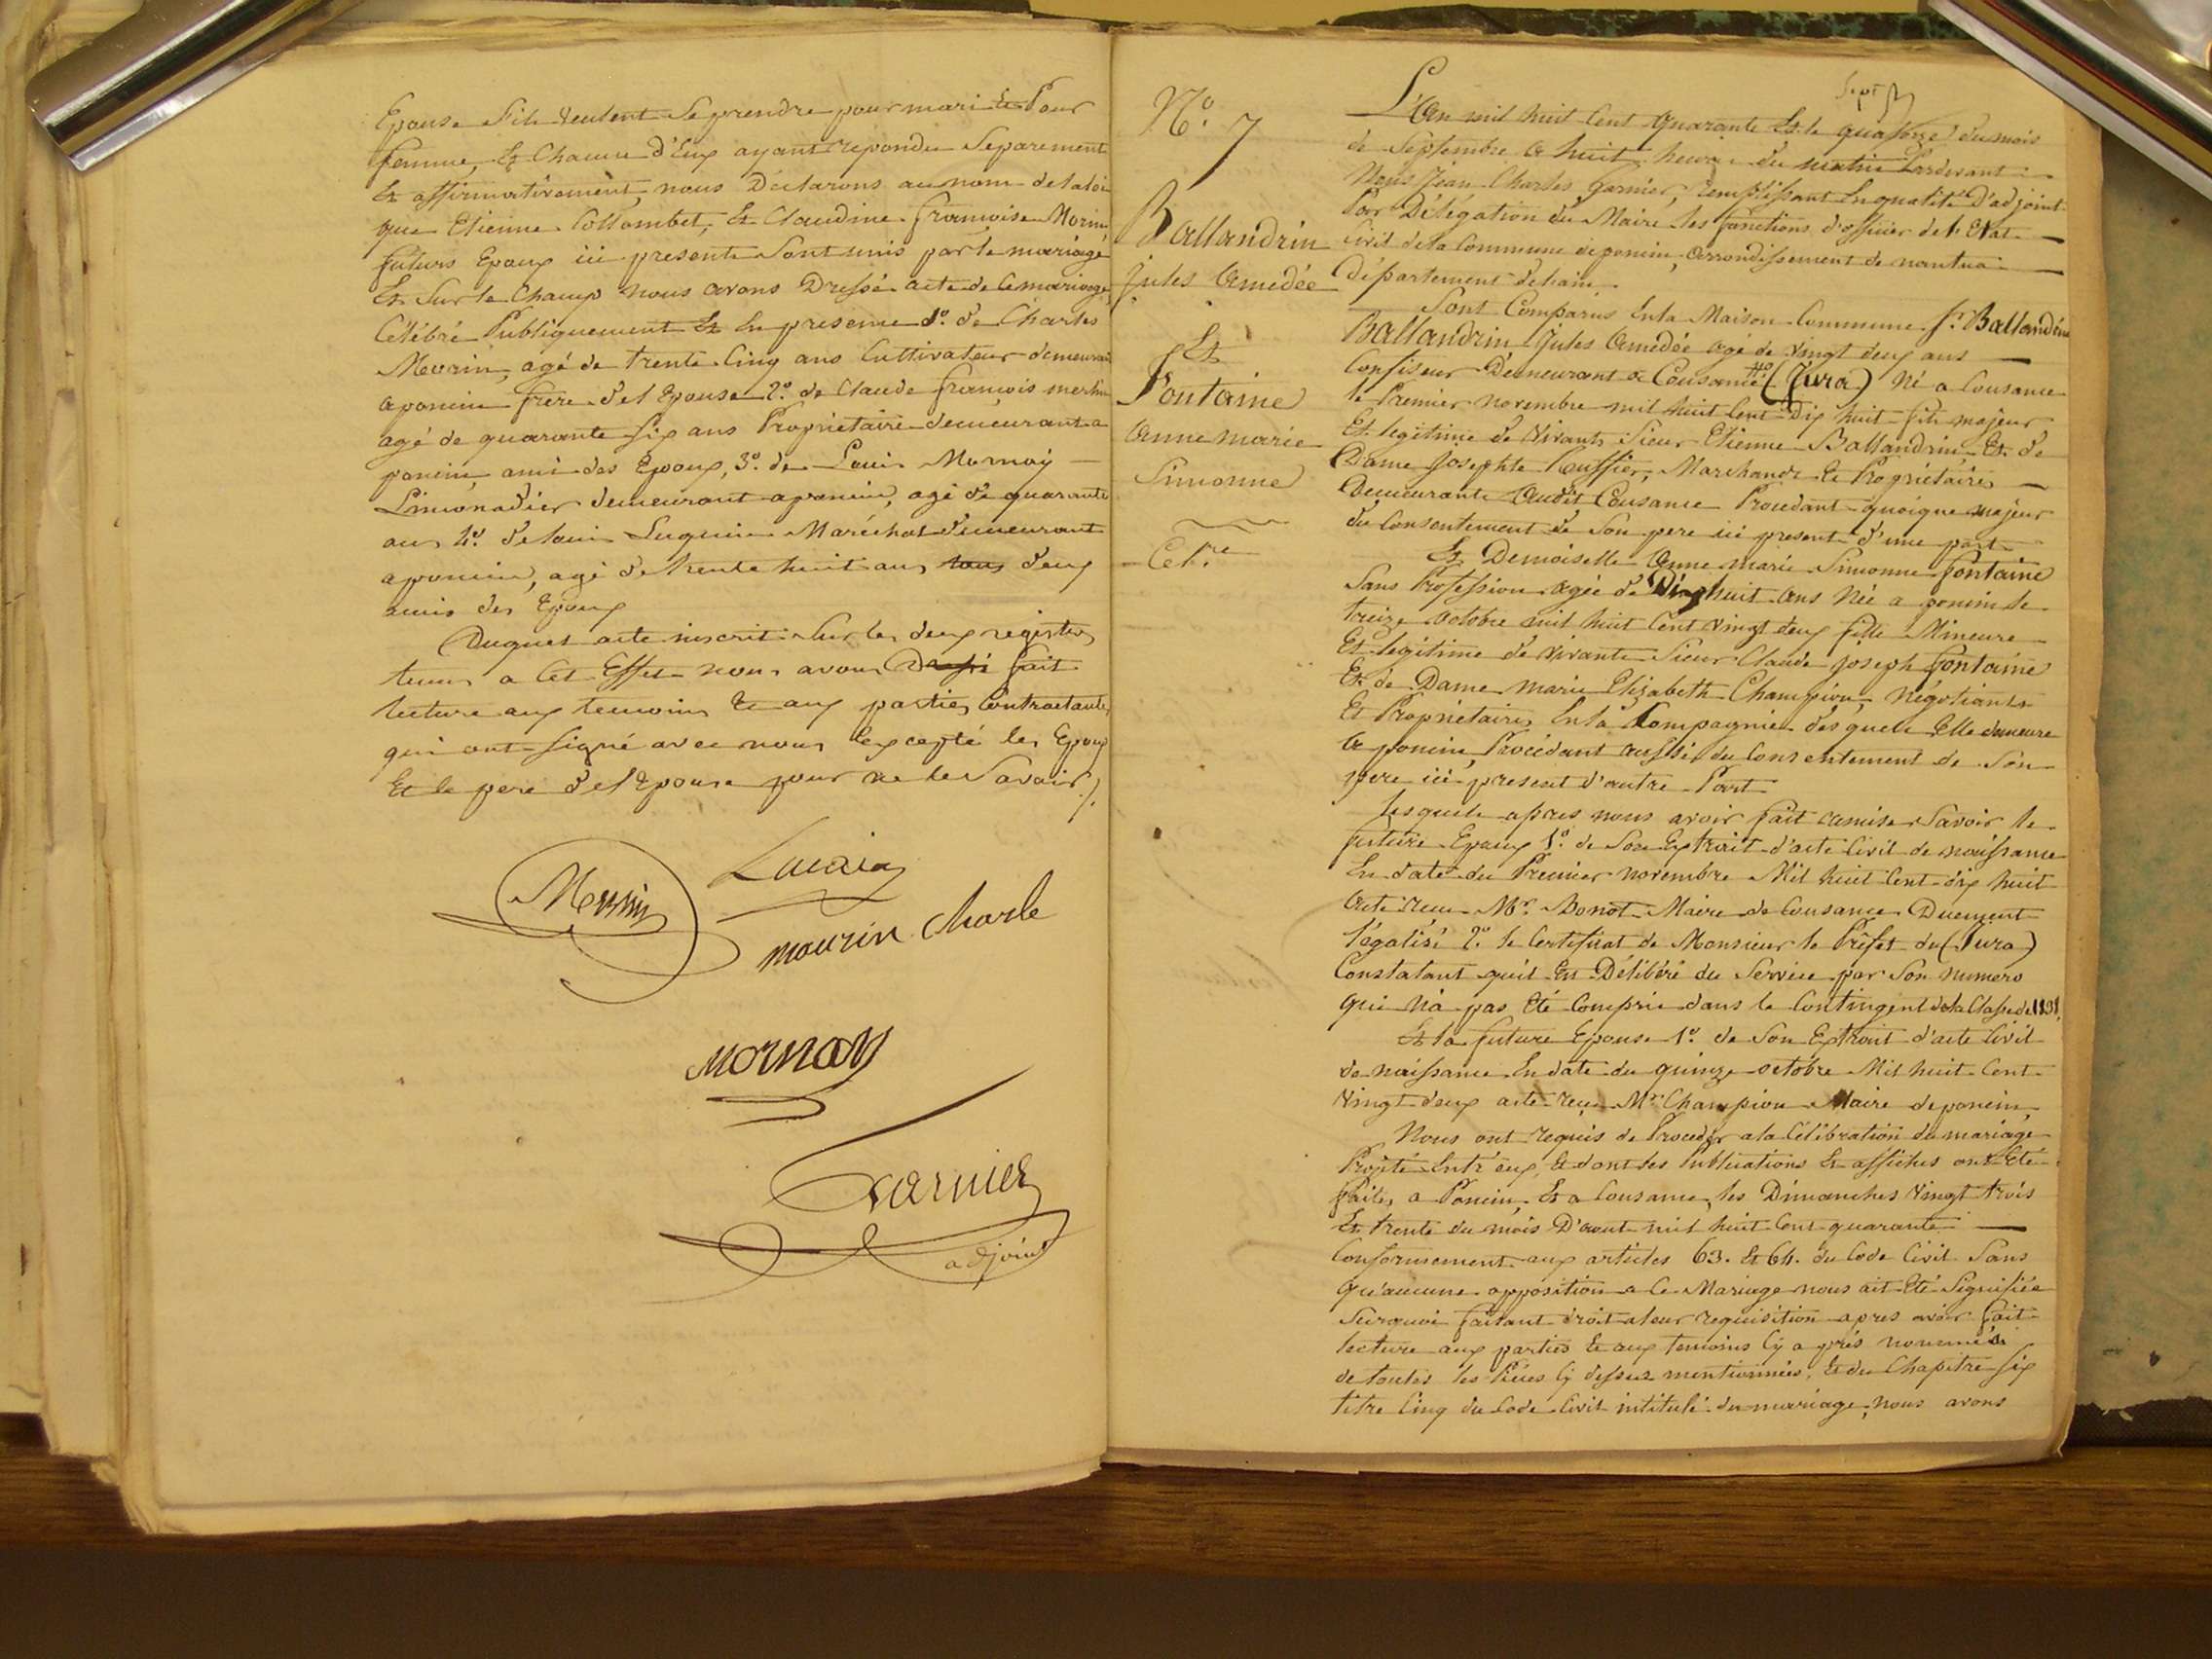 Epouse S'ils veulent se prendre pour mari et Pour
femme, Et Chacun d'Eux ayant repondu Separement
Et affirmativement, nous Déclarons au nom de la loi
que Etienne Collombet, Et Claudine françoise Morin
futurs Epoux ici presents Sont unis par le mariage
Et Sur le Champ nous avons Dressé acte de Ce mariage
Célébré Publiquement Et En presence 1º. de Charles
Meurin, agé de trente Cinq ans Cultivateur demeurant
a poncin frere de l'Epouse 2º. de Claude françois
agé de quarante Six ans Propriétaire demeurant a
poncin, ami des Epoux, 3º. de Louis Mornay —
Limonadier demeurant a poncin, agé de quarante
ans 4º. de louis Luquin Maréchal demeurant
a poncin, agé de trente huit ans tous deux
amis des Epoux
Duquel acte inscrit Sur les deux registres
tenus a Cet Effet nous avons Dressé fait
lecture aux temoins Et aux parties Contractantes
qui ont Signé avec nous Excepté les Epoux
Et le pere de l'Epouse pour ne le Savoir ./.
mourin Charle
Mornay
Garnier
adjoint
Nº. 7
Ballandrin
Jules Amedée
Et
Fontaine
Anne marie
Simonne
Sept
L'An mil huit Cent Quarante Et le quatorze du mois
de Septembre a huit heures du matin Pardevant
Nous Jean Charles Garnier, remplissant En qualité D'adjoint
Par Délégation du Maire les fonctions d'officier de l'Etat —
Civil de la Commune de poncin, arrondissement de nantua —
Département de l'ain.
Sont Comparus En la Maison Commune Sr. Ballandrin
Ballandrin Jules Amedée agé de Vingt deux ans —
Confiseur Demeurant a Cousance (Jura) Né a Cousance
le Premier novembre mil huit Cent Dix huit fils majeur
Et legitime de Vivants Sieur Etienne Ballandrin Et de
Dame Josephte Ruffier, Marchands Et Propriétaires —
Demeurants Audit Cousance Procedant quoique majeur
du Consentement de Son pere ici present d'une part
Et Demoiselle Anne marie Simonne fontaine
Sans Profession agée de Dix huit ans Née a poncin le
treize octobre mil huit Cent vingt deux fille Mineure
Et légitime de vivants Sieur Claude Joseph fontaine
Et de Dame marie Elizabeth Champion, Négotiants
Et Propriétaires En la Compagnie desquels Elle demeure
a poncin, Procédant aussi du Consentement de Son
pere ici present d'autre Part
Lesquels apres nous avoir fait remise Savoir le
future Epoux 1º. de Son Extrait d'acte Civil de naissance
En date du Premier novembre Mil huit Cent dix huit
acte reçu Mr. Monot Maire de Cousance Duement
légalisé 2º. le Certificat de Monsieur le Préfet du (Jura)
Constatant qu'il Est Délibéré du Service par Son numero
qui N'a pas Eté Compris dans le Contingent de la Classe de 1838.
Et la future Epouse 1º. de Son Extrait d'acte Civil
de naissance En date du quinze octobre Mil huit Cent
Vingt deux acte reçu Mr. Champion Maire de poncin,
Nous ont requis de Proceder a la Célébration du mariage
Projeté Entr'eux, Et dont les Publications Et affiches ont Eté
faites a Poncin, Et a Cousance, les Dimanches Vingt trois
Et trente du mois D'aout mil huit Cent quarante —
Conformement aux articles 63. Et 64. du Code Civil Sans
qu'aucune opposition a Ce Mariage nous ait Eté Signifiée
Surquoi faisant droit a leur requisition apres avoir fait
lecture aux parties Et aux temoins Cy aprés nommés
de toutes les Pièces Cy dessus mentionnées, Et du Chapitre Six
titre Cinq du Code Civil intitulé du mariage, nous avons